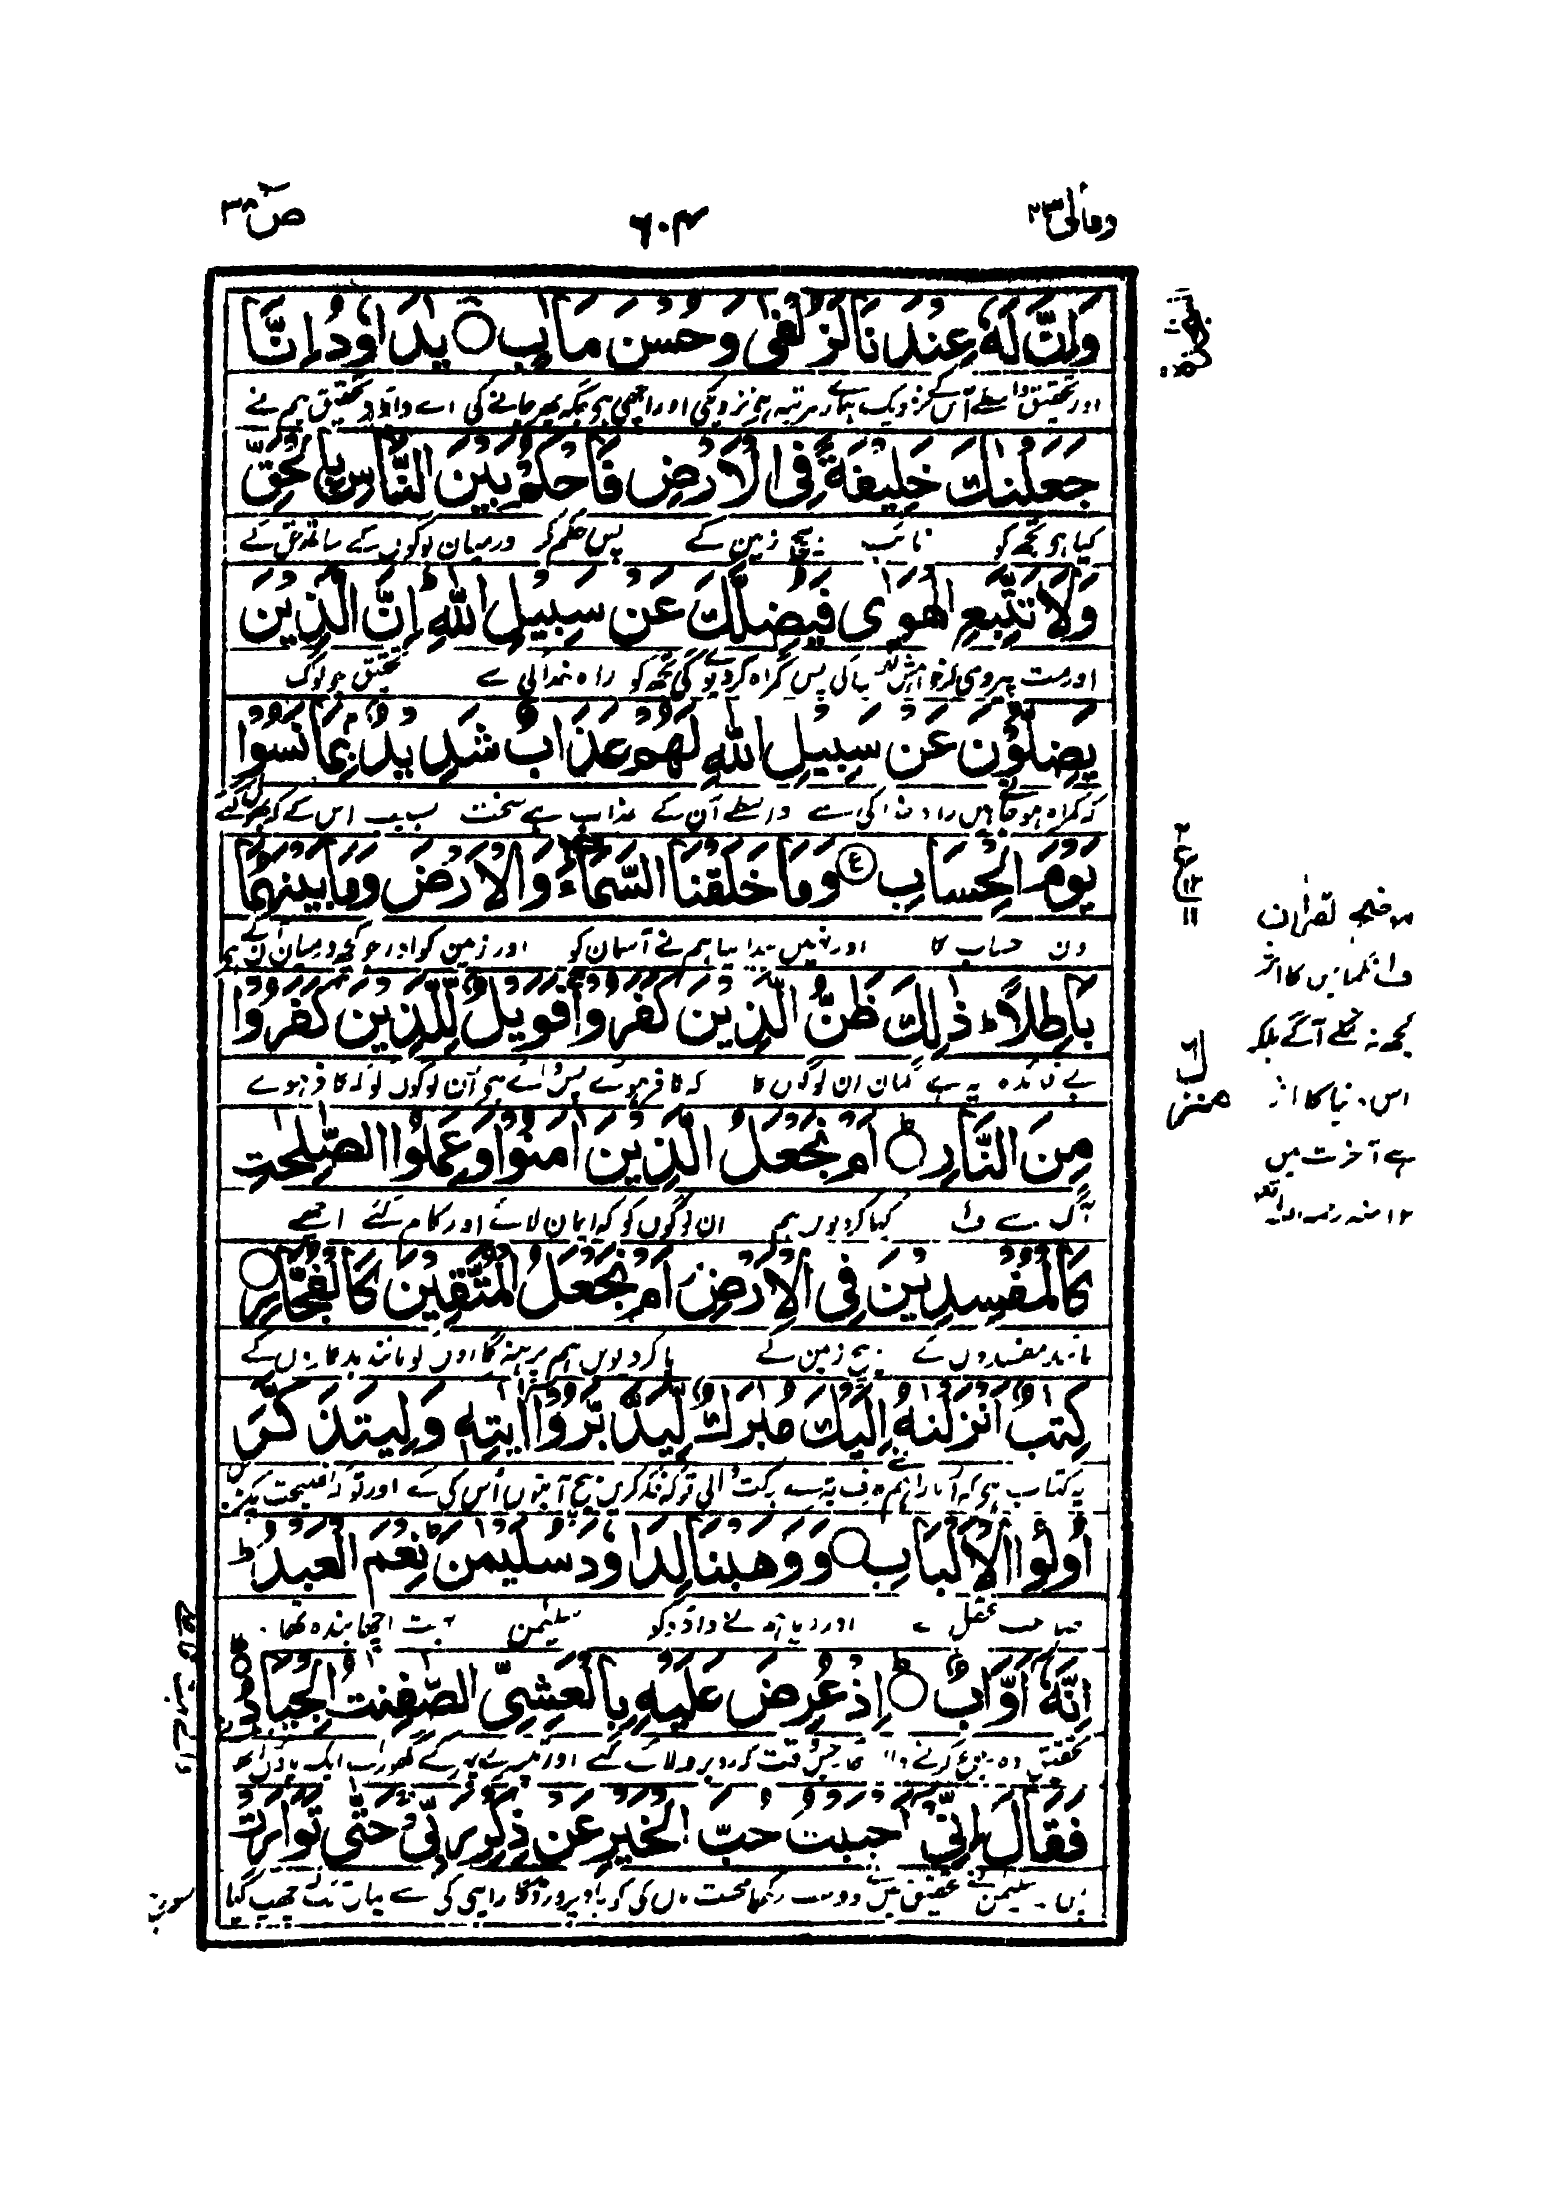 ومالی ٢٣ ٦٠٤ صٓ ٣٨
وَاِنَّ لَهٗ عِنْدَنَا لَزُلْفٰى وَحُسْنَ مَاٰبٍ ۝ يٰدَاوٗدُ اِنَّا
اور تحقیق واسطے اس کے نزدیک ہمارے مرتبہ ہی نزدیکی اور اچھی ہی جگہ پھر جانے کی اے داؤد تحقیق ہم نے
جَعَلْنٰكَ خَلِيْفَةً فِى الْاَرْضِ فَاحْكُمْ بَيْنَ النَّاسِ بِالْحَقِّ
کیا ہو تجھ کو نائب بیچ زمین کے پس حکم کر درمیان لوگوں کے ساتھ حق کے
وَلَا تَتَّبِعِ الْهَوٰى فَيُضِلَّكَ عَنْ سَبِيْلِ اللّٰهِ ؕ اِنَّ الَّذِيْنَ
اور مت پیروی کر خواہش پس گمراہ کر دیوے گی تجھ کو راہ خدا کی سے تحقیق جو لوگ
يَضِلُّوْنَ عَنْ سَبِيْلِ اللّٰهِ لَهُمْ عَذَابٌ شَدِيْدٌۢ بِمَا نَسُوْا
کہ گمراہ ہو جاتے ہیں راہ خدا کی سے واسطے ان کے عذاب ہے سخت بسبب اس کے کہ بھول گئے
يَوْمَ الْحِسَابِ ۝ع وَمَا خَلَقْنَا السَّمَآءَ وَالْاَرْضَ وَمَا بَيْنَهُمَا
دن حساب کا اور نہیں پیدا کیا ہم نے آسمان کو اور زمین کو اور جو کچھ درمیان ان کے ہی
بَاطِلًا ؕ ذٰلِكَ ظَنُّ الَّذِيْنَ كَفَرُوْا ۚ فَوَيْلٌ لِّلَّذِيْنَ كَفَرُوْا
بے فائدہ یہ ہے گمان ان لوگوں کا کہ کافر ہوے پس وائے ہی ان لوگوں کو کہ کافر ہوے
مِنَ النَّارِ ۝ؕ اَمْ نَجْعَلُ الَّذِيْنَ اٰمَنُوْا وَعَمِلُوا الصّٰلِحٰتِ
آگ سے ف کیا کردیویں ہم ان لوگوں کو کہ ایمان لائے اور کام کئے اچھے
كَالْمُفْسِدِيْنَ فِى الْاَرْضِ ۡ اَمْ نَجْعَلُ الْمُتَّقِيْنَ كَالْفُجَّارِ ۝
مانند مفسدوں کے بیچ زمین کے یا کردیویں ہم پرہیزگاروں کو مانند بدکاروں کے
كِتٰبٌ اَنْزَلْنٰهُ اِلَيْكَ مُبٰرَكٌ لِّيَدَّبَّرُوْٓا اٰيٰتِهٖ وَلِيَتَذَكَّرَ
یہ کتاب ہی کہ اتارا ہم نے طرف تیرے برکت والی تو کہ فکر کریں بیچ آیتوں اس کی کے اور تو کہ نصیحت پکڑیں
اُولُوا الْاَلْبَابِ ۝ وَوَهَبْنَا لِدَاوٗدَ سُلَيْمٰنَ ؕ نِعْمَ الْعَبْدُ ؕ
صاحب عقل کے اور دیا ہم نے داؤد کو سلیمٰن بہت اچھا بندہ تھا
اِنَّهٗٓ اَوَّابٌ ۝ؕ اِذْ عُرِضَ عَلَيْهِ بِالْعَشِيِّ الصّٰفِنٰتُ الْجِيَادُ ۝
تحقیق وہ رجوع کرنے والا تھا جس وقت کہ روبرو لائے گئے اوپر تیسرے پہر کے گھوڑے ایک پاؤں اٹھا
فَقَالَ اِنِّىْٓ اَحْبَبْتُ حُبَّ الْخَيْرِ عَنْ ذِكْرِ رَبِّىْ ۚ حَتّٰى تَوَارَتْ
پس سلیمٰن نے تحقیق میں نے دوست رکھا محبت مال کی کو یاد پروردگار اپنے کی سے یہاں تک کہ چھپ گیا
سورج
ع
منزل ٦
موضح القرآن
ف١ نہ کا اثر
کچھ نہ نکلے آگے بلکہ
اس دنیا کا اثر
ہے آخرت میں
١٢ منہ رحمہ اللہ